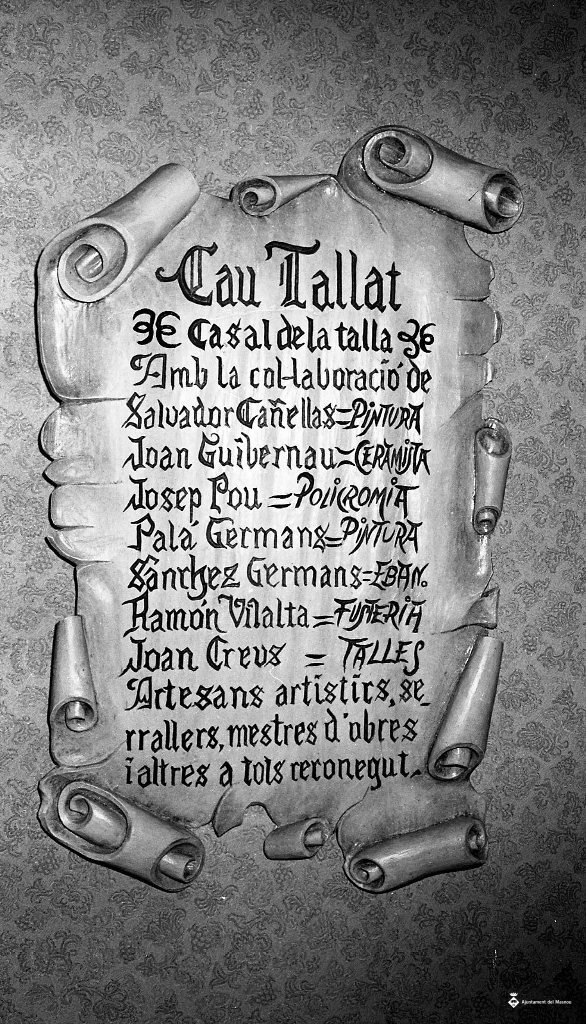 Cau Tallat
Casal de la talla
Amb la col·laboració de
Salvador Cañellas=PINTURA
Joan Guibernau=CERAMISTA
Josep Pou =POLICROMIA
Palá Germans=PINTURA
Sánchez Germans=EBAN.
Ramón Vilalta=FUSTERIA
Joan Creus = TALLES
Artesans artistics, se_
rrallers, mestres d'obres
i altres a tots reconegut.
Ajuntament del Masnou